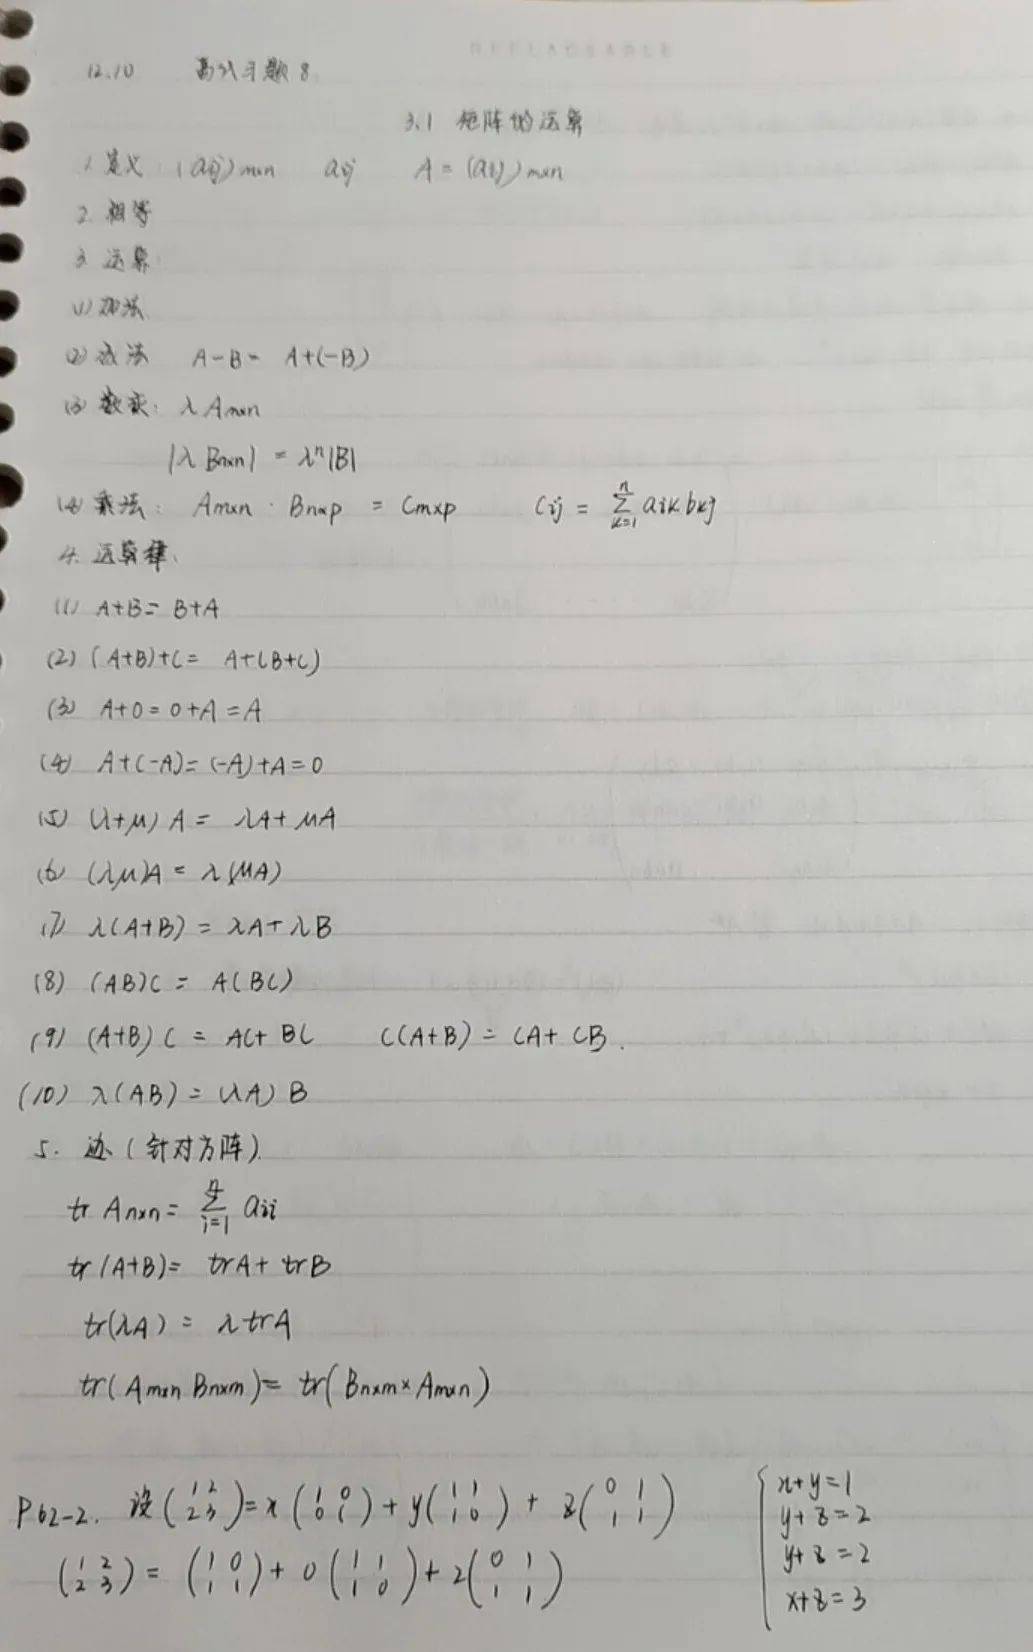 12.10 高代习题8.
3.1 矩阵的运算
1. 定义: (aij)m×n aij A = (aij)m×n
2. 相等
3. 运算:
(1) 加法
(2) 减法 A-B= A+(-B)
(3) 数乘: λAm×n
|λBn×n| = λⁿ|B|
(4) 乘法: Am×n · Bn×p = Cm×p Cij = ∑ₖ₌₁ⁿ aik bkj
4. 运算律、
(1) A+B= B+A
(2) (A+B)+C= A+(B+C)
(3) A+0=0+A=A
(4) A+(-A)=(-A)+A=0
(5) (λ+μ)A= λA+μA
(6) (λμ)A = λ(μA)
(7) λ(A+B) = λA+λB
(8) (AB)C = A(BC)
(9) (A+B)C = AC+BC C(A+B) = CA+CB.
(10) λ(AB) = (λA)B
5. 迹(针对方阵)
tr An×n = ∑ᵢ₌₁ⁿ aii
tr(A+B)= trA+trB
tr(λA) = λtrA
tr(Am×n Bn×m)= tr(Bn×m×Am×n)
P62-2. 设(1 2 / 2 3)=x(1 0 / 0 1)+y(1 1 / 1 0)+z(0 1 / 1 1)
x+y=1
y+z=2
y+z=2
x+z=3
(1 2 / 2 3)=(1 0 / 1 1)+0(1 1 / 1 0)+2(0 1 / 1 1)